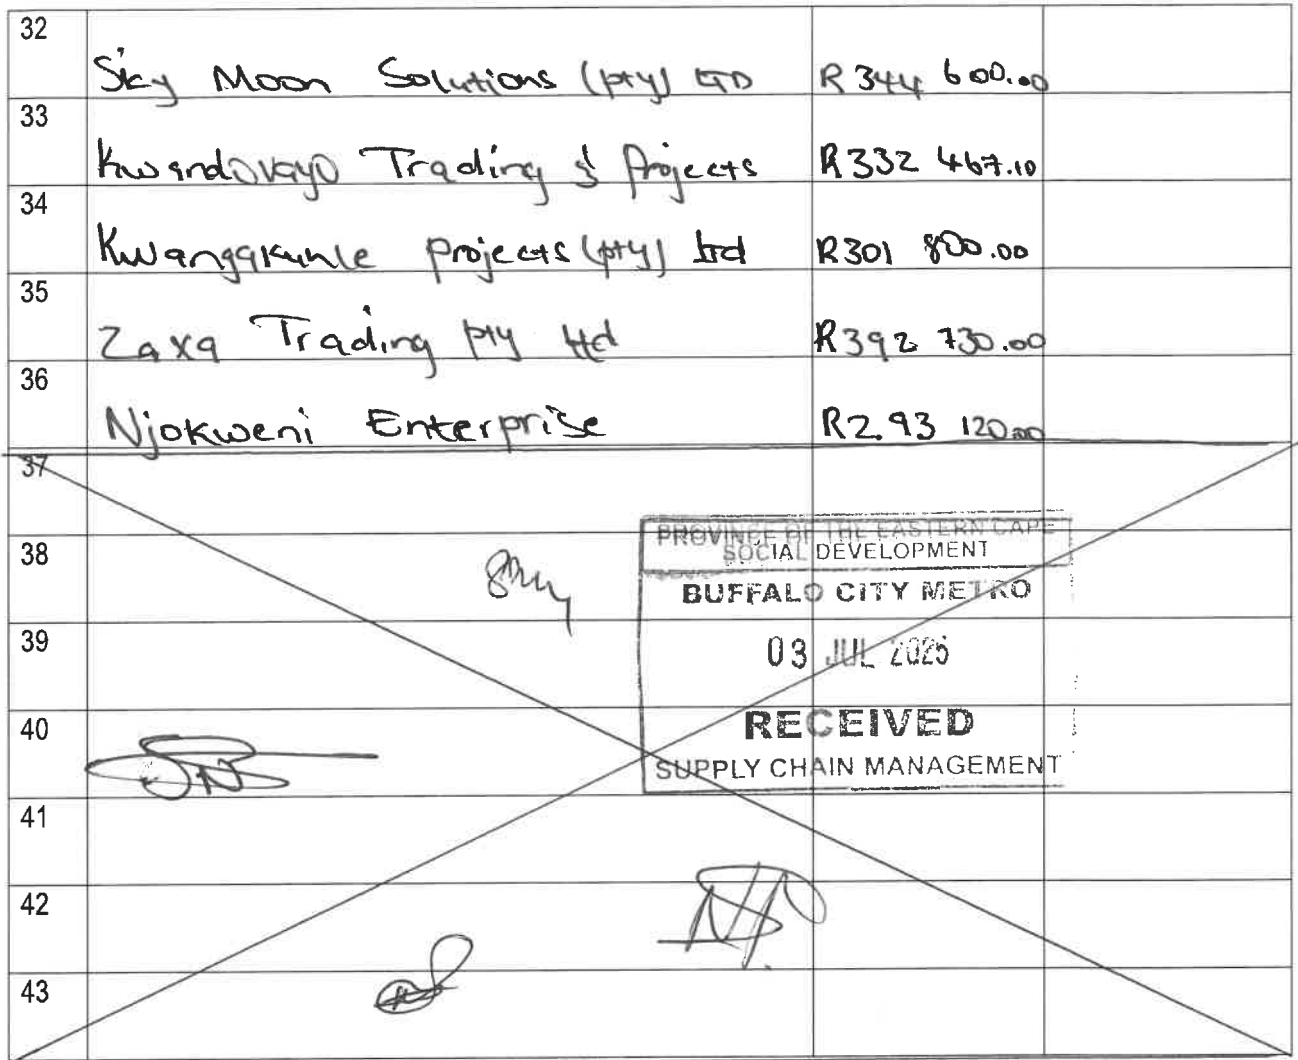 32
Sky Moon Solutions (pty) LTD R344 600.00
33
Kwandovayo Trading & Projects R332 467.10
34
Kwangqkuhle projects (pty) Ltd R301 800.00
35
Zaxa Trading pty Ltd R392 730.00
36
Njokweni Enterprise R2.93 120.00
37
38
PROVINCE OF THE EASTERN CAPE
SOCIAL DEVELOPMENT
BUFFALO CITY METRO
39
03 JUL 2025
40
RECEIVED
SUPPLY CHAIN MANAGEMENT
41
42
43